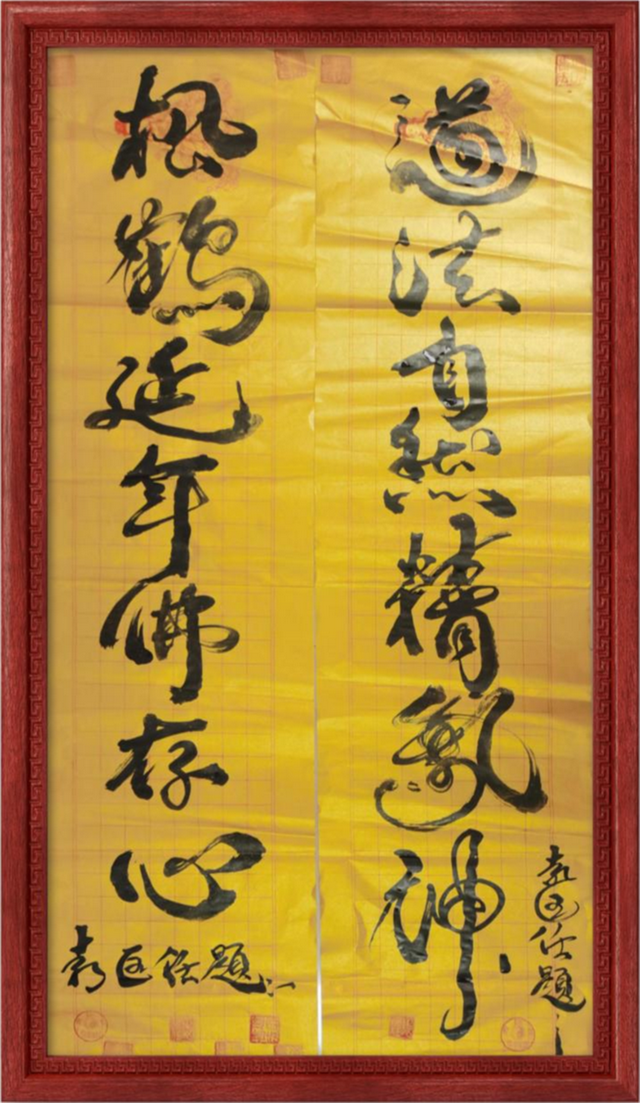 道法自然精氣神
松鶴延年佛存心